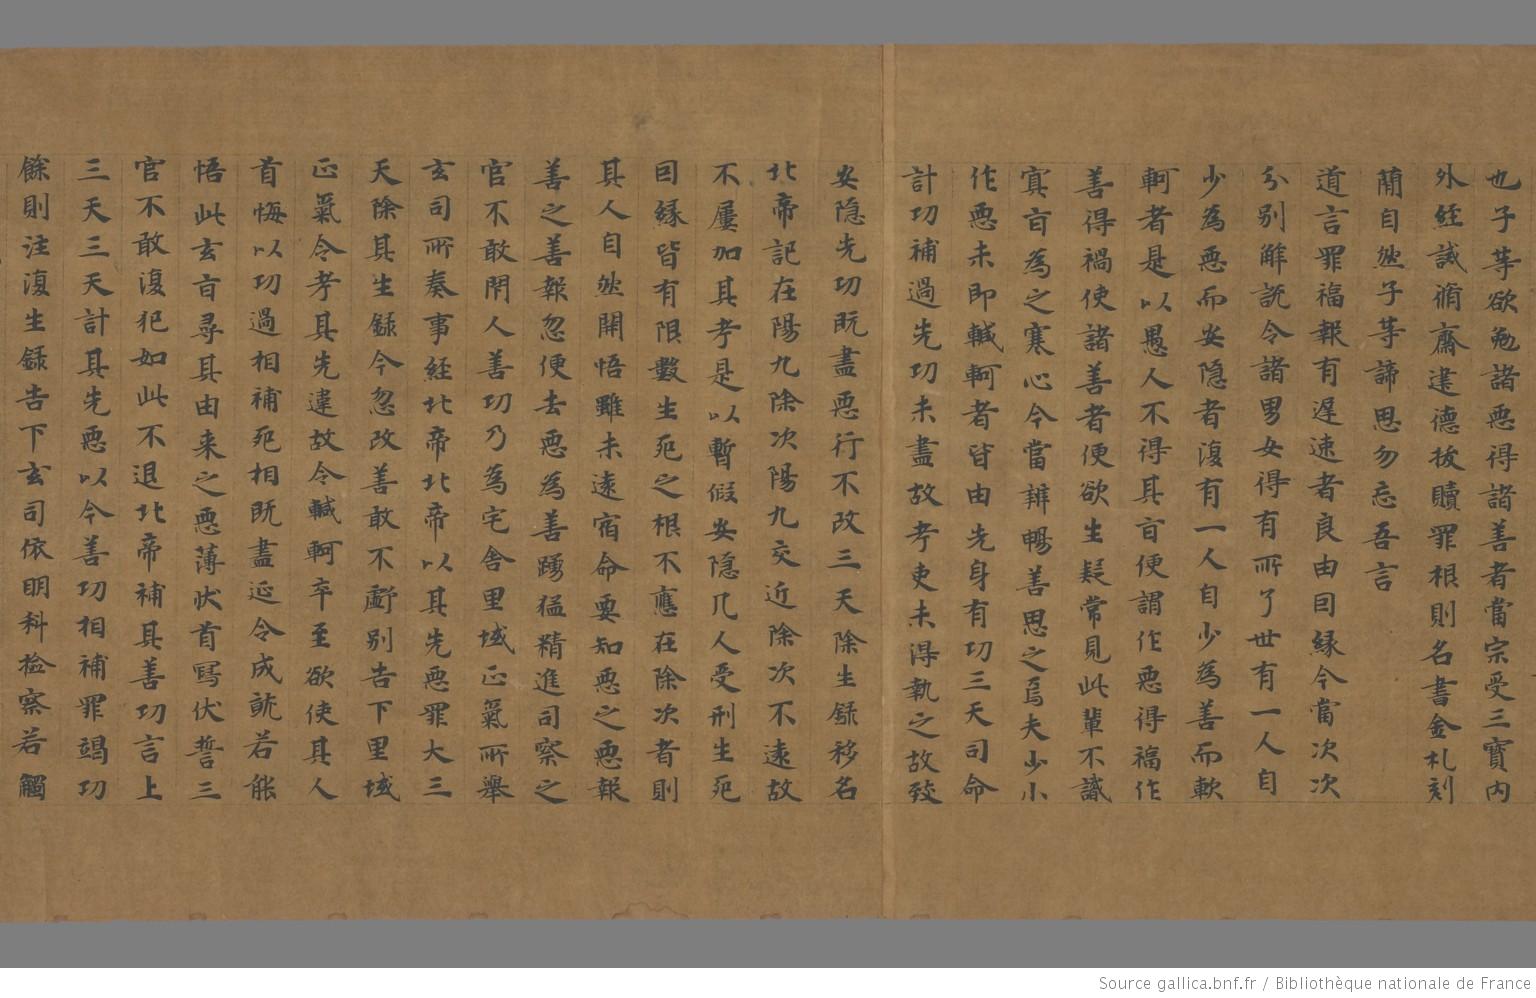 也子等欲勉諸惡得諸善者當宗受三寶內
外經誡脩齋建德拔贖罪根則名書金札刻
蕳自然子等諦思勿忘吾言
道言罪福報有遲速者良由因緣今當次次
分別解說令諸男女得有所了世有一人自
少為惡而安隱者復有一人自少為善而軟
軻者是以愚人不得其旨便謂作惡得福作
善得禍使諸善者便欲生疑常見此輩不識
冥旨為之寒心今當辯暢善思之焉夫少小
作惡未即轗軻者皆由先身有功三天司命
計功補過先功未盡故考吏未得執之故致
安隱先功既盡惡行不改三天除生録移名
北帝記在陽九除次陽九交近除次不遠故
不屢加其考是以暫假安隱凡人受刑生死
因緣皆有限數生死之根不應在除次者則
其人自然開悟雖未遠宿命要知惡之惡報
善之善報忽便去惡為善踴猛精進司察之
官不敢閇人善功乃為宅舍里域正氣所舉
玄司所奏事經北帝北帝以其先惡罪大三
天除其生録今忽改善敢不𠜱別告下里域
正氣令考其先違故令轗軻卒至欲使其人
首悔以功過相補死相既盡延令成就若能
悟此玄旨尋其由来之惡薄狀首寫伏誓三
官不敢復犯如此不退北帝補其善功言上
三天三天計其先惡以今善功相補罪竭功
餘則注復生録告下玄司依明科撿察若觸